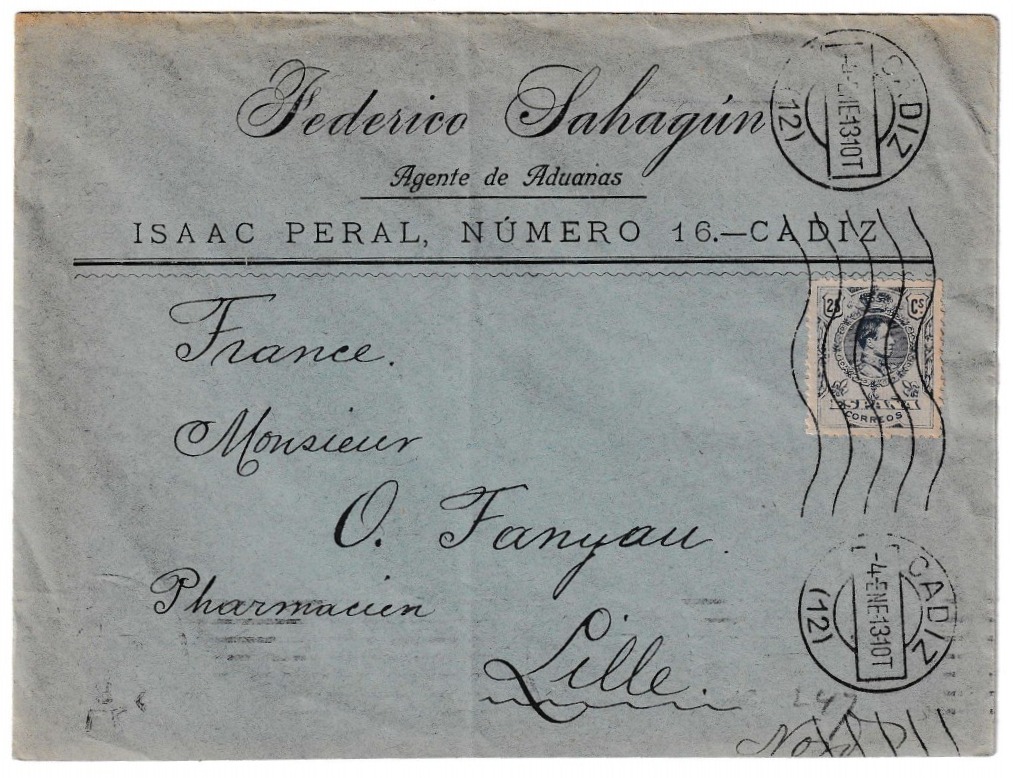 Federico Sahagún
Agente de Aduanas
ISAAC PERAL, NÚMERO 16.—CADIZ
CADIZ
-4-ENE-13·10T
(12)
25 Cs
CORREOS
France.
Monsieur
O. Fanyau.
Pharmacien
Lille.
Nord
CADIZ
-4-ENE-13·10T
(12)